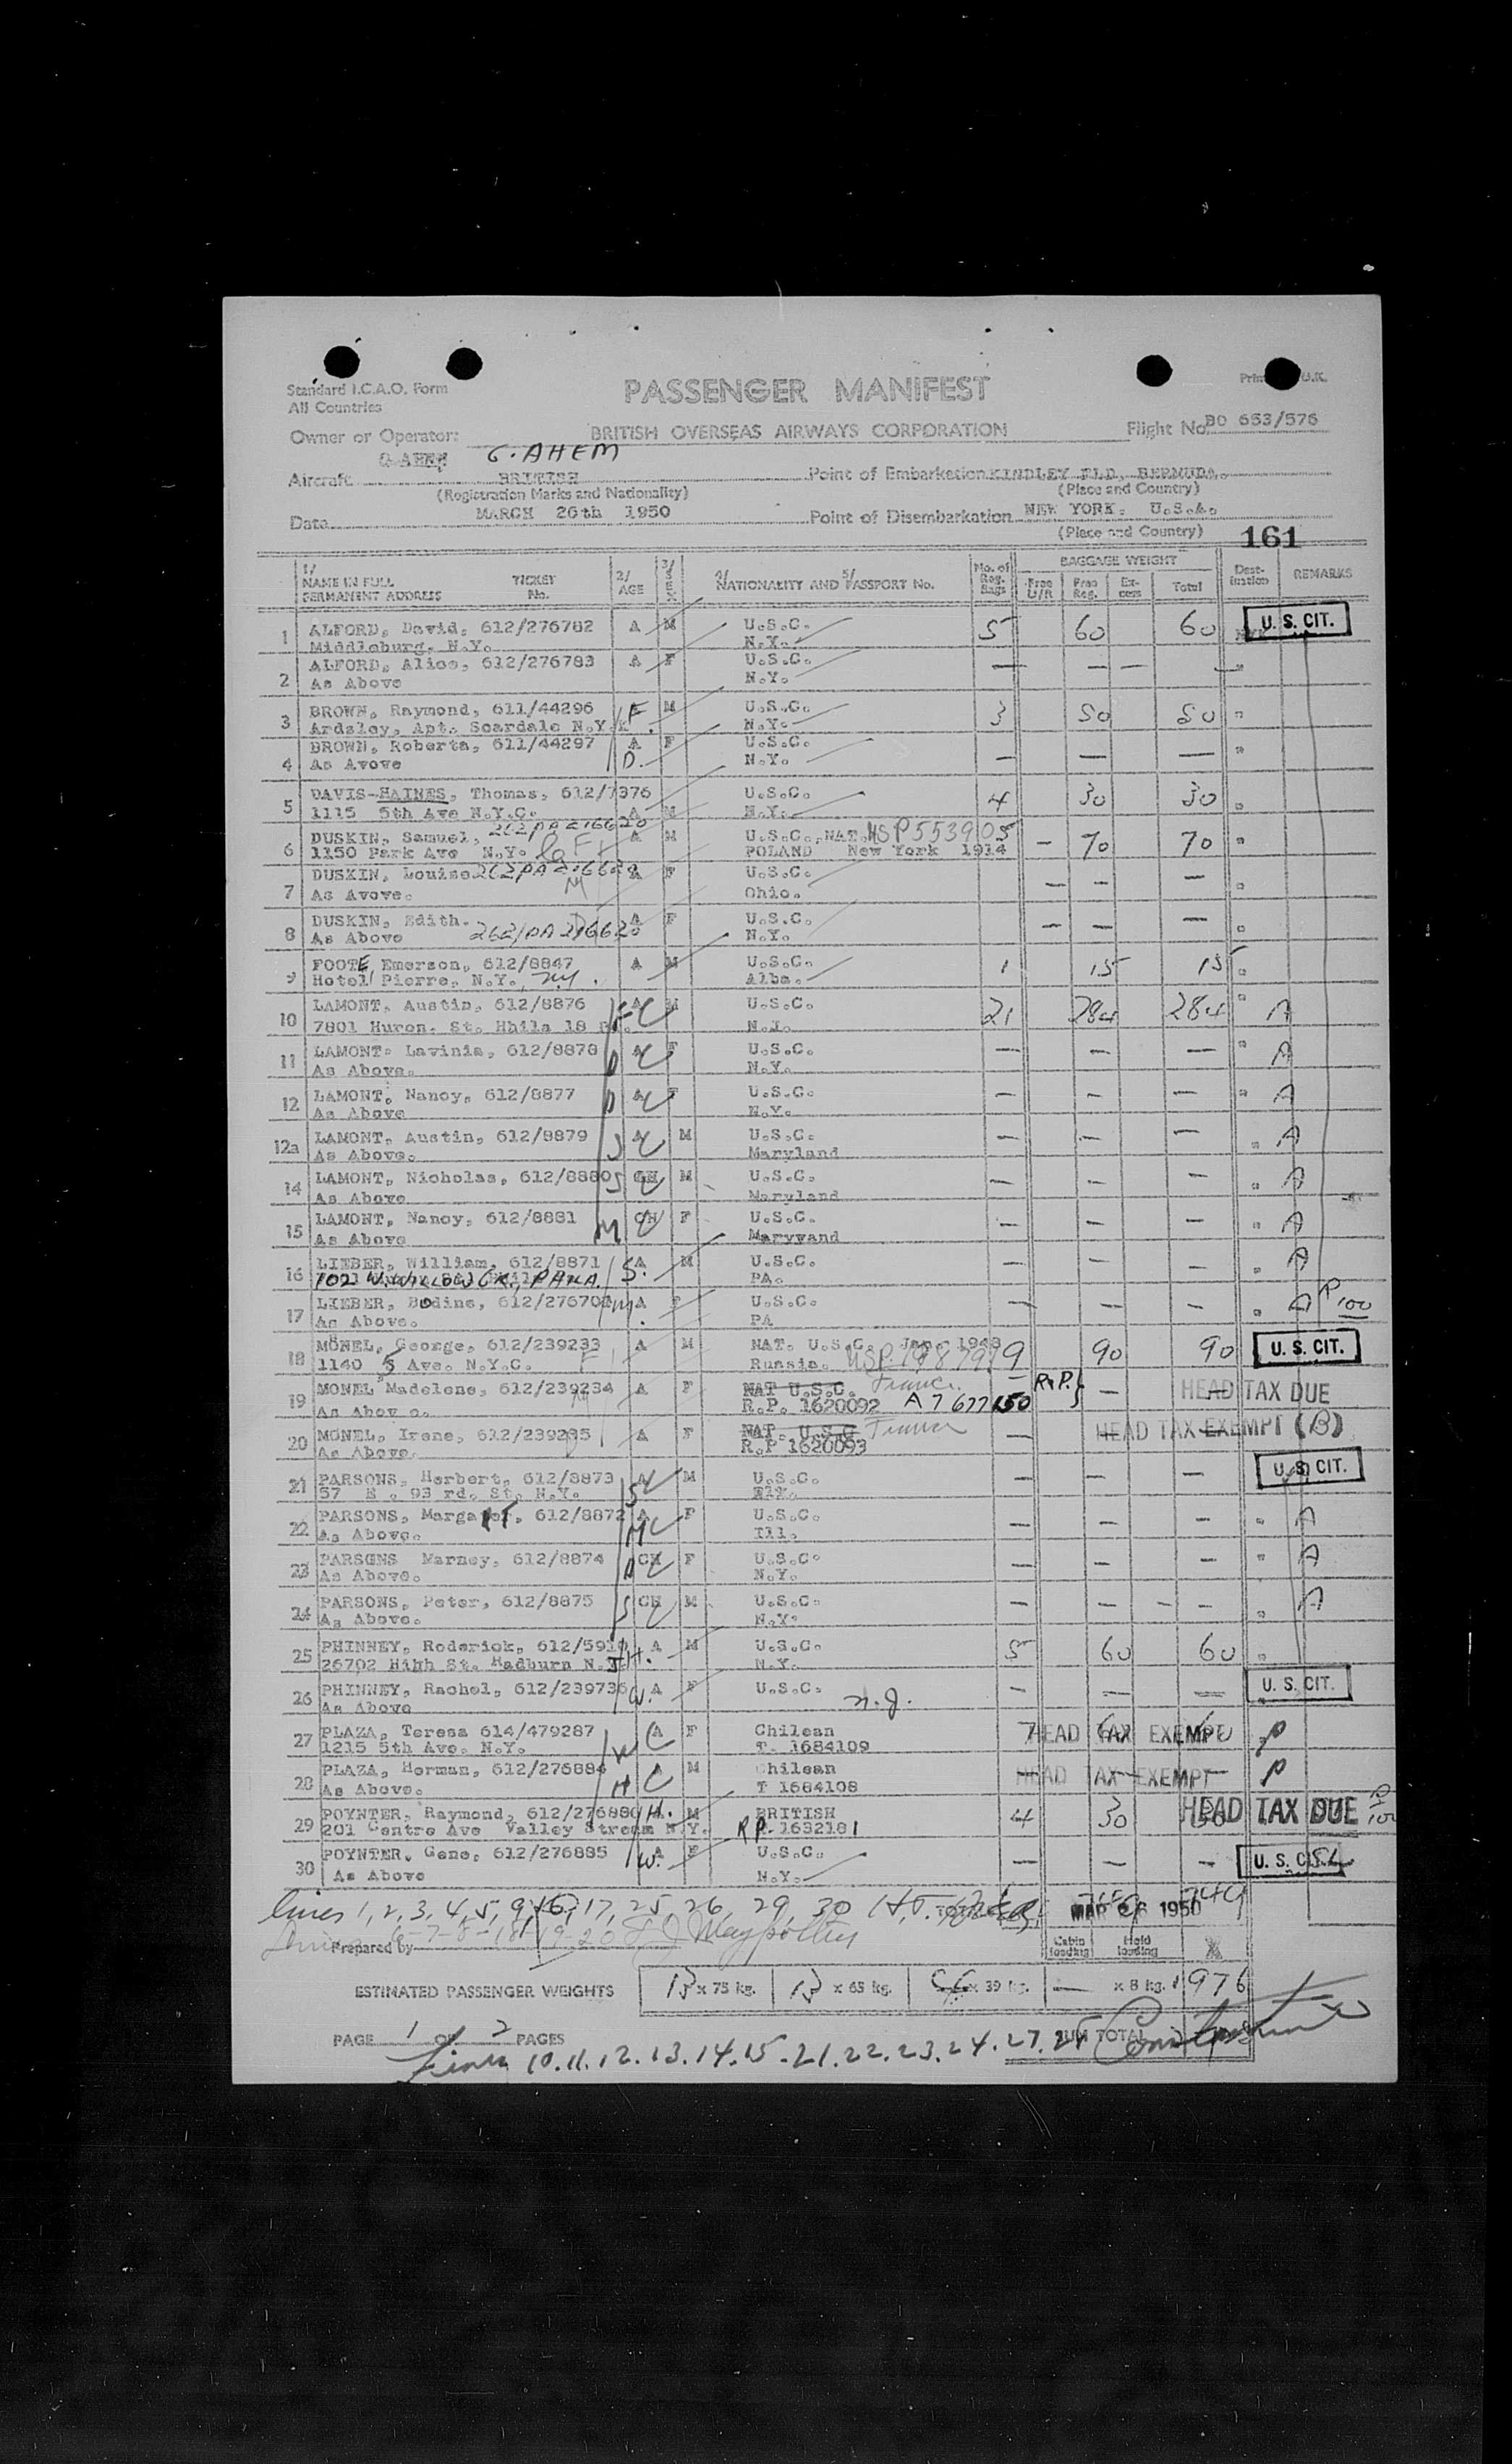 Standard I.C.A.O. Form
All Countries
PASSENGER MANIFEST
U.K.
Owner or Operator: BRITISH OVERSEAS AIRWAYS CORPORATION Flight No. BO 653/576
G. AHEM G. AHEM
Aircraft BRITISH Point of Embarkation KINDLEY FLD, BERMUDA.
(Registration Marks and Nationality) (Place and Country)
Date MARCH 26th 1950 Point of Disembarkation NEW YORK. U.S.A.
(Place and Country) 161
1/ NAME IN FULL PERMANENT ADDRESS TICKET No. 2/ AGE 3/ SEX 4/ NATIONALITY AND 5/ PASSPORT No. No. of Reg. Bags BAGGAGE WEIGHT Free U/R Free Reg. Excess Total Destination REMARKS
1 ALFORD, David, 612/276782 A M U.S.C. 5 60 60 U. S. CIT.
Middleburg, N.Y. N.Y.
2 ALFORD, Alice, 612/276783 A F U.S.C. — — — — "
As Above N.Y.
3 BROWN, Raymond, 611/44296 F M U.S.C. 3 50 50 "
Ardsley, Apt. Scardale N.Y. N.Y.
4 BROWN, Roberta, 611/44297 A F U.S.C. — — — "
As Avove D. N.Y.
5 DAVIS-HAINES, Thomas, 612/7376 U.S.C. 4 30 30 "
1115 5th Ave N.Y.C. A M N.Y.
6 DUSKIN, Samuel, 262PA216620 A M U.S.C. NAT. USP55390 5 — 70 70 "
1150 Park Ave N.Y. F POLAND New York 1914
7 DUSKIN, Louise 262PA216620 A F U.S.C. — — — "
As Avove. M Ohio.
8 DUSKIN, Edith. A F U.S.C. — — — "
As Above 262/PA216620 N.Y.
9 FOOTE Emerson, 612/8847 A M U.S.C. 1 15 15 "
Hotel Pierre, N.Y., N.Y. Alba.
10 LAMONT, Austin, 612/8876 A M U.S.C. 21 284 284 " A
7801 Huron. St. Hhila 18 F N.J.
11 LAMONT. Lavinia, 612/8878 A F U.S.C. — — — " A
As Above. D N.Y.
12 LAMONT, Nancy, 612/8877 A F U.S.C. — — — " A
As Above D N.Y.
12a LAMONT, Austin, 612/8879 A M U.S.C. — — — " A
As Above. S Maryland
14 LAMONT, Nicholas, 612/8880 S CH M U.S.C. — — — " A
As Above Maryland
15 LAMONT, Nancy, 612/8881 CH F U.S.C. — — — " A
As Above M Marywand
16 LIEBER, William, 612/8871 A M U.S.C. — — — " A
1021 W. WILLOW GR., PHILA. S. PA.
17 LIEBER, Bodine, 612/276708 M A F U.S.C. — — — " A P 100
As Above. PA
18 MONEL, George, 612/239233 A M NAT. U.S.C. Jan. 1943 9 90 90 U. S. CIT.
1140 5 Ave. N.Y.C. F Russia.
19 MONEL Madelene, 612/239234 A F NAT U.S.C. France. R.P. — HEAD TAX DUE
As Above. R.P. 1620092 A 7 677 150
20 MONEL, Irene, 612/239235 A F NAT. U.S.C France — HEAD TAX EXEMPT (B)
As Above. R.P 1620093
21 PARSONS, Herbert, 612/8873 A M U.S.C. — — — U. S. CIT.
57 E. 93 rd. St. N.Y. S
22 PARSONS, Margaret, 612/8872 A F U.S.C. — — — " A
As Above. M Ill.
23 PARSONS Marney, 612/8874 CH F U.S.C. — — — " A
As Above. D N.Y.
24 PARSONS, Peter, 612/8875 S CH M U.S.C. — — — — " A
As Above. N.Y.
25 PHINNEY, Roderick, 612/5919 A M U.S.C. 5 60 60 "
26702 Hihh St. Hadburn N.J. H. N.Y.
26 PHINNEY, Rachel, 612/239736 W. A F U.S.C. N.J. — — — U. S. CIT.
As Above
27 PLAZA, Teresa 614/479287 A F Chilean 7 HEAD TAX EXEMPT P
1215 5th Ave. N.Y. W T. 1684109
28 PLAZA, Herman, 612/276884 A M Chilean HEAD TAX EXEMPT P
As Above. H T 1684108
29 POYNTER, Raymond, 612/276880 H. M BRITISH 4 30 30 HEAD TAX DUE P 100
201 Centre Ave Valley Stream N.Y. R P. 1632181
30 POYNTER, Gene, 612/276885 A F U.S.C. — — — U. S. CIT.
As Above W. N.Y.
Lines 1, 2, 3, 4, 5, 9, 16, 17, 25, 26, 29, 30 TOTAL 749 MAR 26 1950 749
Lines 6-7-8-18-19-20
Prepared by Cabin loading Hold loading
ESTIMATED PASSENGER WEIGHTS 13 x 75 kg. 13 x 65 kg. x 39 kg. — x 8 kg. 1976
PAGE 1 OF 2 PAGES SUM TOTAL
Lines 10.11.12.13.14.15-21.22.23.24.27.28